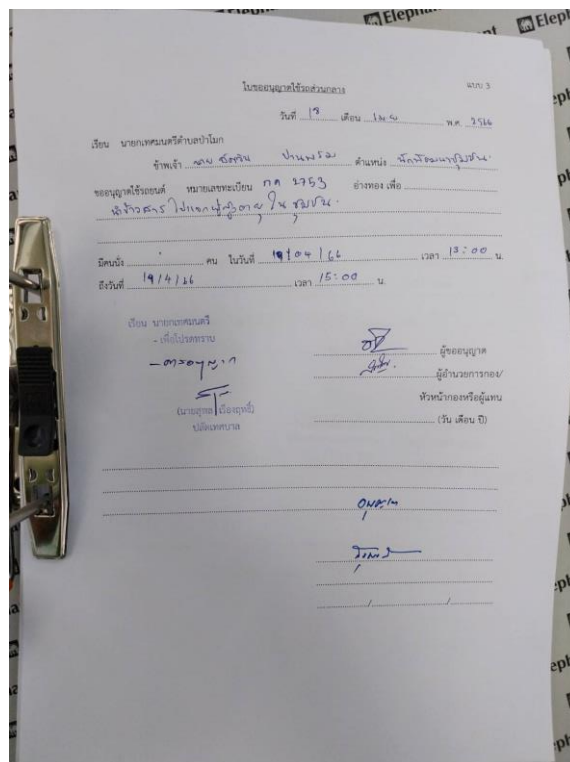 Elephant
Elep
ใบขออนุญาตใช้รถส่วนกลาง
แบบ 3
วันที่ 18 เดือน เม.ย. พ.ศ. 2566
เรียน นายกเทศมนตรีตำบลป่าโมก
ข้าพเจ้า นาย ตำแหน่ง นักพัฒนาชุมชน
ขออนุญาตใช้รถยนต์ หมายเลขทะเบียน กค 2753 อ่างทอง เพื่อ
นำข้าวสารไปแจกผู้สูงอายุในชุมชน
มีคนนั่ง คน ในวันที่ 19/04/66 เวลา 13:00 น.
ถึงวันที่ 19/4/66 เวลา 15:00 น.
เรียน นายกเทศมนตรี
- เพื่อโปรดทราบ
- ควรอนุญาต
ปลัดเทศบาล
ผู้ขออนุญาต
ผู้อำนวยการกอง/
หัวหน้ากองหรือผู้แทน
(วัน เดือน ปี)
อนุญาต